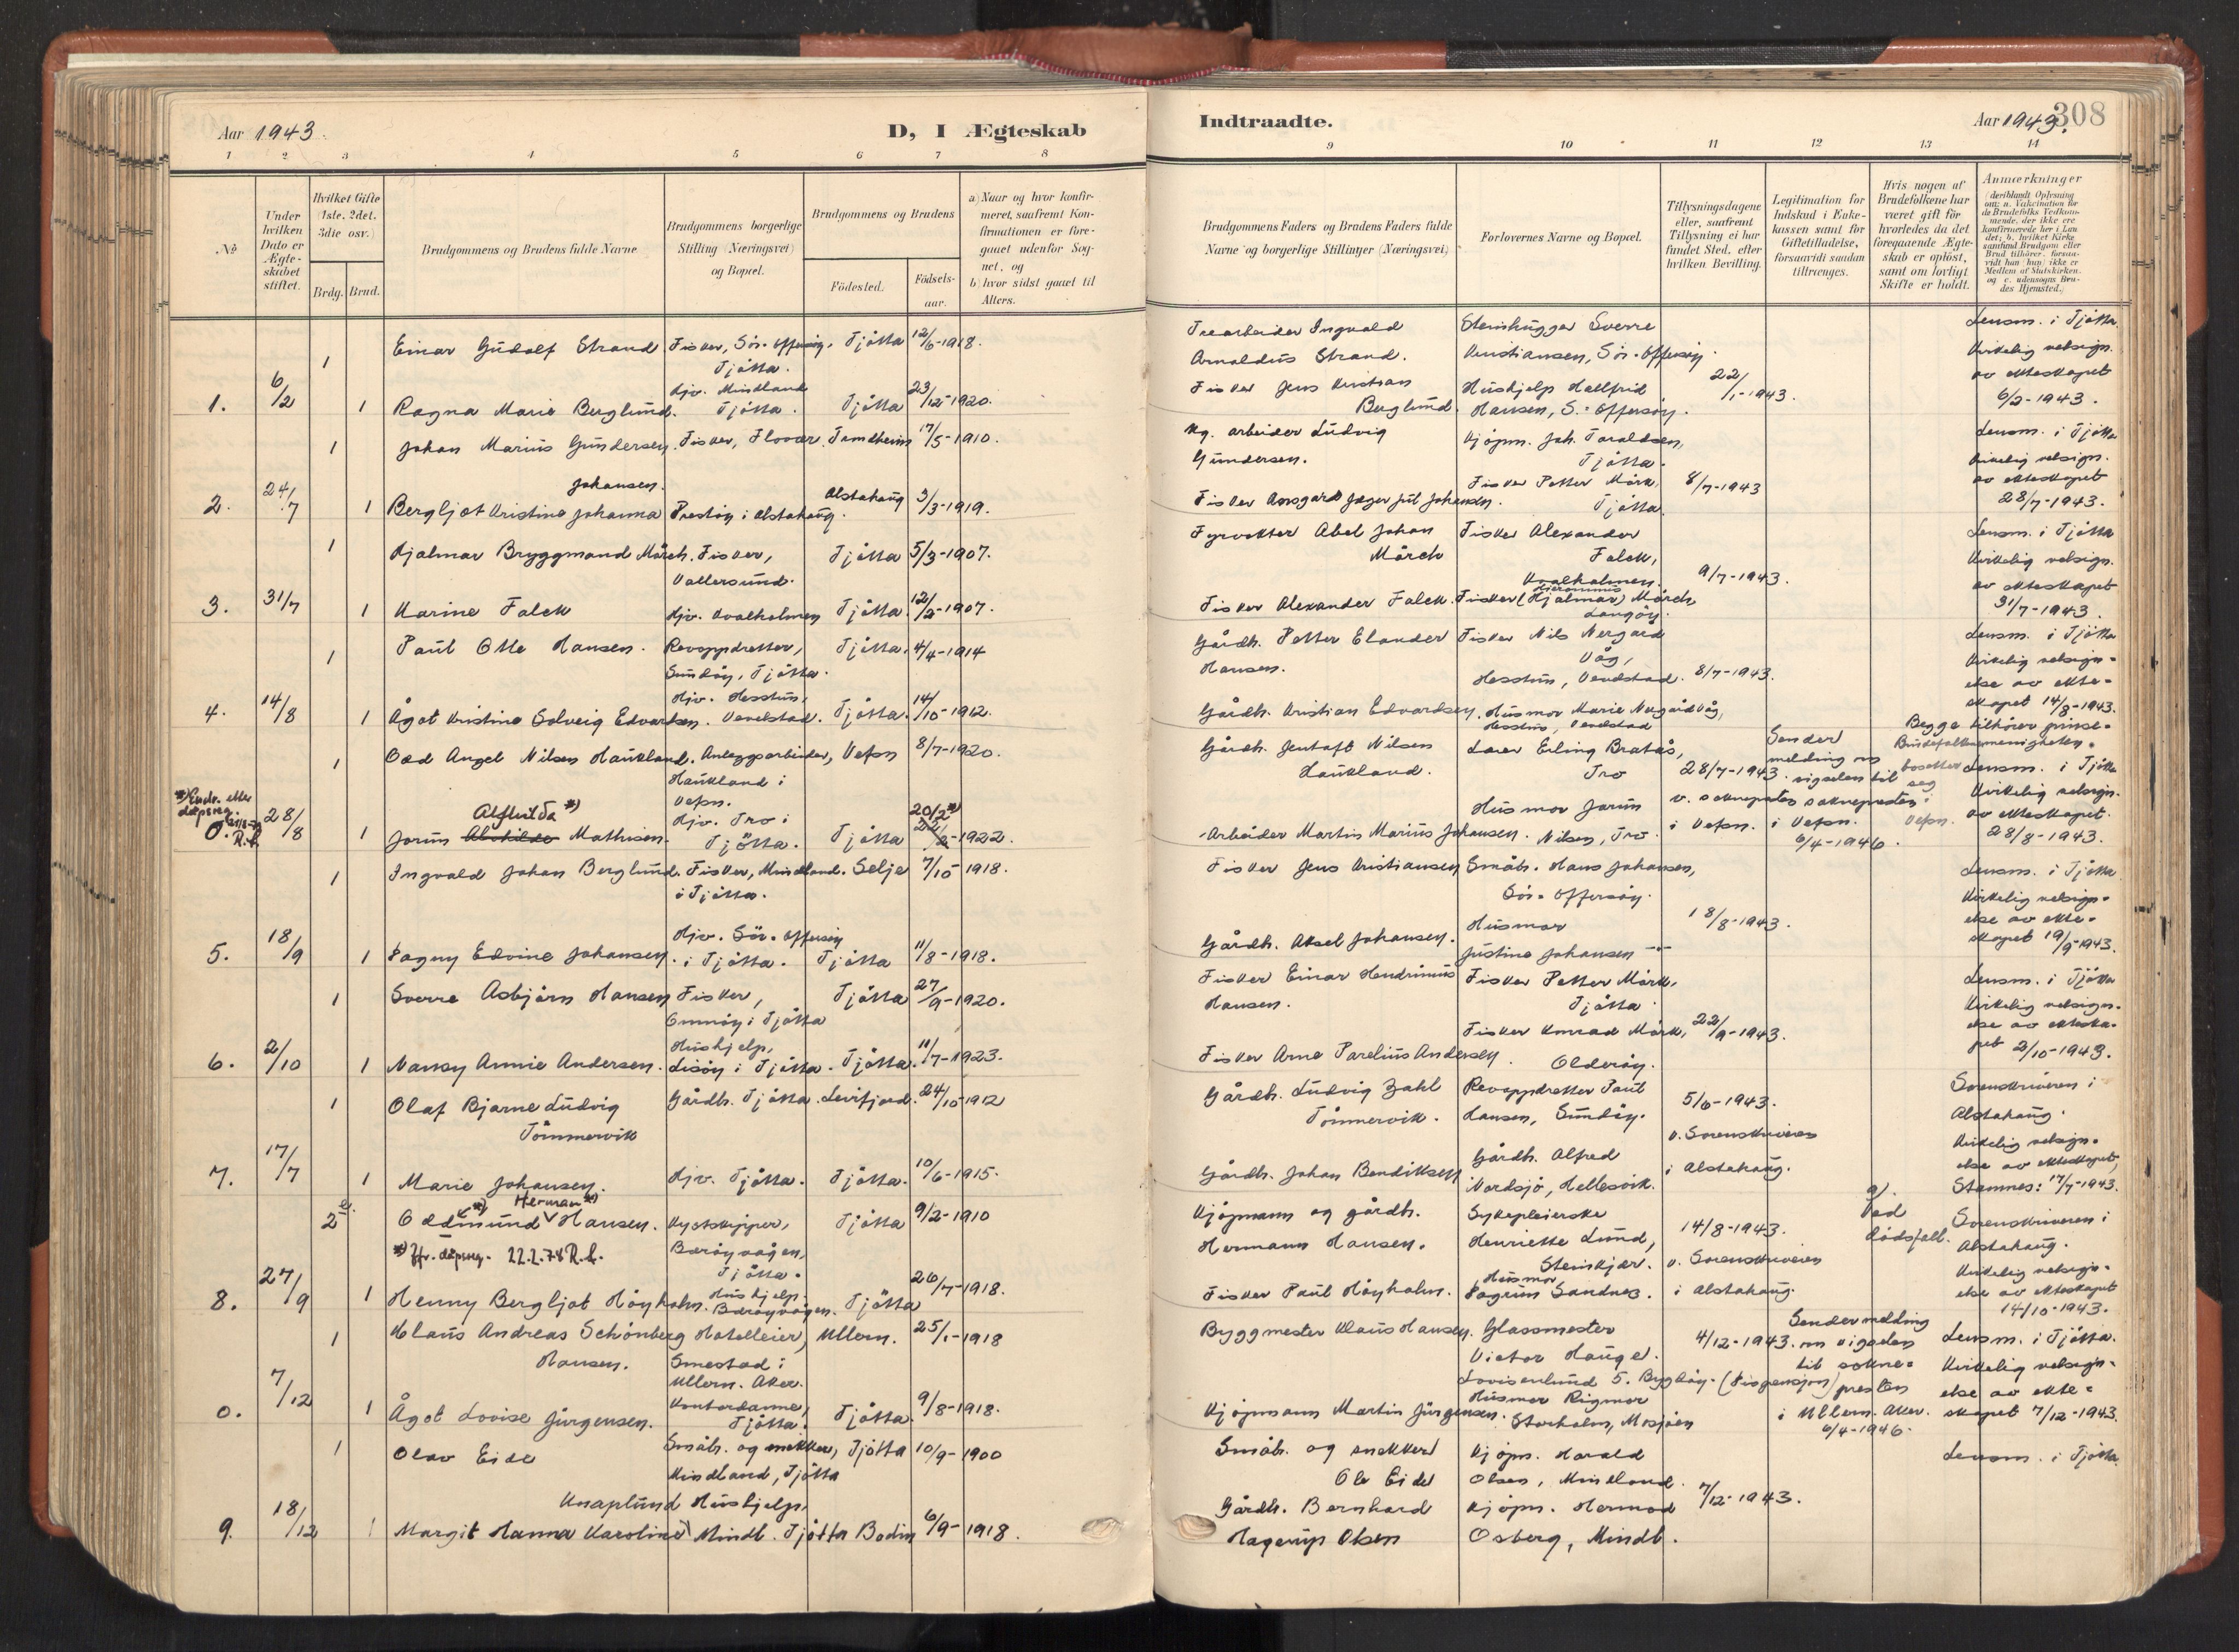 Aar 1943.
D, I Ægteskab
1 2 3 4 5 6 7 8
No
Under hvilken Dato er Ægteskabet stiftet.
Hvilket Gifte (1ste, 2det, 3die osv.)
Brdg. Brud.
Brudgommens og Brudens fulde Navne
Brudgommens borgerlige Stilling (Næringsvei) og Bopæl.
Brudgommens og Brudens
Fødested.
Fødselsaar.
a) Naar og hvor konfirmeret, saafremt Konfirmationen er foregaaet udenfor Sognet, og
b) hvor sidst gaaet til Alters.
1 Einar Gudolf Strand Fisker, Sör-Offersöy, Tjötta 12/6-1918.
Tjötta.
Hjv. Mindland
1. 6/2 1 Ragna Marie Berglund. Tjötta. Tjötta 23/12-1920.
1 Johan Marius Gundersen. Fisker, Flovær. Trondheim 17/5-1910.
Johansen.
2. 24/7 1 Bergljot Kristine Johanna Prestöy i Alstahaug. Alstahaug 3/3-1919.
1 Hjalmar Bryggmand Mörch. Fisker, Tjötta 5/3-1907.
Vallersund.
3. 31/7 1 Karine Falck Hjv. Kvalholmen Tjötta 12/2-1907.
1 Paul Otto Hansen. Revoppdretter, Tjötta. 4/4-1914
Sundöy, Tjötta.
Hjv. Hesstun,
4. 14/8 1 Ågot Kristine Solveig Edvardsen. Vevelstad. Tjötta. 14/10-1912.
1 Odd Angel Nilsen Haukland. Anleggsarbeider, Vefsn 8/7-1920.
Haukland i
Vefsn.
*) Endr. etter
dåpsreg.
R.f.
Alfhilda *) Hjv. Tro i 20/2 *)
0. 28/8 1 Jorun Alvhilde Mathisen. Tjötta. Tjötta 22/2-1922.
1 Ingvald Johan Berglund. Fisker, Mindland. Selje 7/10-1918.
i Tjötta.
Hjv. Sör-Offersöy
5. 18/9 1 Dagny Edvine Johansen. i Tjötta. Tjötta 11/8-1918.
1 Sverre Asbjörn Hansen Fisker, Tjötta 27/9-1920.
Omnöy i Tjötta
Hushjelp,
6. 2/10 1 Nansy Annie Andersen. Lisöy i Tjötta. Tjötta. 11/7-1923.
1 Olaf Bjarne Ludvig Gårdb. Tjötta. Levifjord. 24/10-1912
Tömmervik
7. 17/7 1 Marie Johansen. Hjv. Tjötta. Tjötta. 10/6-1915.
Herman *)
2 Oddmund Hansen. Kystskipper, Tjötta 9/2-1910
*) Jfr. dåpsreg. 22.2.78 R.f. Bæröyvågen,
Tjötta.
Hushjelp
8. 27/9 1 Henny Bergljot Höyholm. Bæröyvågen. Tjötta 26/7-1918.
1 Klaus Andreas Schönberg Hotelleier, Ullern. 25/1-1918
Hansen. Smestad i
Ullern. Aker.
Kontordame,
0. 7/12 1 Ågot Lovise Jürgensen. Tjötta. Tjötta. 9/8-1918.
1 Olav Eide Småb. og snekker, Tjötta 10/9-1900
Mindland, Tjötta
Knaplund Hushjelp,
9. 18/12 1 Margit Hanna Karoline Mindl. Tjötta Bodin 6/9-1918.
Indtraadte.
Aar 1943. 308
9 10 11 12 13 14
Brudgommens Faders og Brudens Faders fulde Navne og borgerlige Stillinger (Næringsvei)
Forlovernes Navne og Bopæl.
Tillysningsdagene eller, saafremt Tillysning ei har fundet Sted, efter hvilken Bevilling.
Legitimation for Indskud i Enkekassen samt for Giftetilladelse, forsaavidt saadan tiltrænges.
Hvis nogen af Brudefolkene har været gift før hvorledes da det foregaaende Ægteskab er opløst, samt om lovligt Skifte er holdt.
Anmærkninger
(deriblandt Oplysning om: a. Vakcination for de Brudefolks Vedkommende, der ikke ere konfirmerede her i Landet; b. hvilket Kirkesamfund Brudgom eller Brud tilhører, forsaavidt han (hun) ikke er Medlem af Statskirken, og c. udensogns Brudes Hjemsted.)
Trearbeider Ingvald Steinhugger Sverre Lensm. i Tjötta
Arnoldus Strand. Kristiansen, Sör-Offersöy. Kirkelig velsign.
Fisker Jens Kristian Hushjelp Hallfrid 22/1-1943. av ekteskapet
Berglund. Hansen, S.-Offersöy. 6/2-1943.
Kg. arbeider Ludvig Kjöpm. Joh. Toraldsen, Lensm. i Tjötta
Gundersen. Tjötta. Kirkelig velsign.
Fisker Petter Mörk, 8/7-1943 av ekteskapet
Fisker Aasgard Jæger Jul Johansen. Tjötta. 28/7-1943.
Fyrvokter Abel Johan Fisker Alexander Lensm. i Tjötta
Mörch Falck, Kirkelig velsign.
Kvalholmen. 9/7-1943. av ekteskapet
Hieronimus
Fisker Alexander Falck. Fisker (Hjalmar) Mörch 31/7-1943.
Langöy.
Gårdb. Petter Elander Fisker Nils Nergård Lensm. i Tjötta
Hansen. Våg, Kirkelig velsign-
Hesstun, Vevelstad. 8/7-1943. else av ekte-
Gårdb. Kristian Edvardsen. Husmor Marie Nergård Våg, skapet 14/8-1943.
Hesstun, Vevelstad Begge tilhörer pinse-
Gårdb. Jentoft Nilsen Lærer Erling Bratås, Sender Brudefolkene menigheten.
Haukland. Tro 28/7-1943. melding om bosetter Lensm. i Tjötta
vigselen til seg Kirkelig velsign.
Husmor Jorun v. sokneprestens sokneprested i av ekteskapet
Arbeider Martin Marius Johansen. Nilsen, Tro. i Vefsn. i Vefsn. Vefsn. 28/8-1943.
6/4-1946.
Fisker Jens Kristiansen Småb. Hans Johansen, Lensm. i Tjötta
Sör-Offersöy. Kirkelig velsign-
Husmor 18/8-1943. else av ekte-
Gårdb. Aksel Johansen. Justine Johansen -"- skapet 19/9-1943.
Fisker Einar Hendrinius Fisker Petter Mörk, Lensm. i Tjötta
Hansen. Tjötta. Kirkelig velsign-
Fisker Konrad Mörk, 22/9-1943. else av ekteska-
Fisker Arne Parelius Andersen. Olderöy. pet 2/10-1943.
Gårdb. Ludvig Zahl Revoppdretter Paul 5/6-1943. Sorenskriveren i
Tömmervik. Hansen, Sundöy. v. Sorenskriveren Alstahaug.
Gårdb. Alfred i Alstahaug. Kirkelig velsign-
Gårdb. Johan Bendiksen Nordsjö, Hellesvik. else av ekteskapet,
Stamnes: 17/7-1943.
Kjöpmann og gårdb. Sykepleierske a). Ved
Hermann Hansen. Henriette Lund, 14/8-1943. dödsfall. Sorenskriveren i
Steinkjer. v. Sorenskriveren Alstahaug.
Husmor Kirkelig velsign-
Fisker Paul Höyholm. Dagrun Sandnes. i Alstahaug. else av ekteskapet
14/10-1943.
Byggmester Klaus Hansen. Glassmester 4/12-1943. Sender melding Lensm. i Tjötta.
Victor Hauge. om vigselen Kirkelig velsign-
Lovisenlund 5. Bygdöy. (Dispensasjon) til sokne- presten else av ekte-
Husmor Rigmor
Kjöpmann Martin Jürgensen. Storholm, Mosjöen i Ullern. Aker. skapet 7/12-1943.
6/4-1946.
Småb. og snekker Kjöpm. Harald Lensm. i Tjötta
Ole Eide Olsen, Mindland. 7/12-1943.
Gårdb. Bernhard Kjöpm. Hermod
Hagerup Olsen Osberg, Mindl.